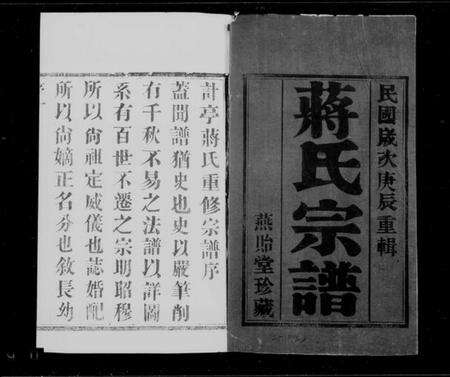 民國歲次庚辰重輯
蔣氏宗譜
燕貽堂珍藏
計亭蔣氏重修宗譜序
蓋聞譜猶史也史以嚴筆削
有千秋不易之法譜以詳圖
系有百世不遷之宗明昭穆
所以尚祖定威儀也誌婚配
所以尚嫡正名分也敘長幼